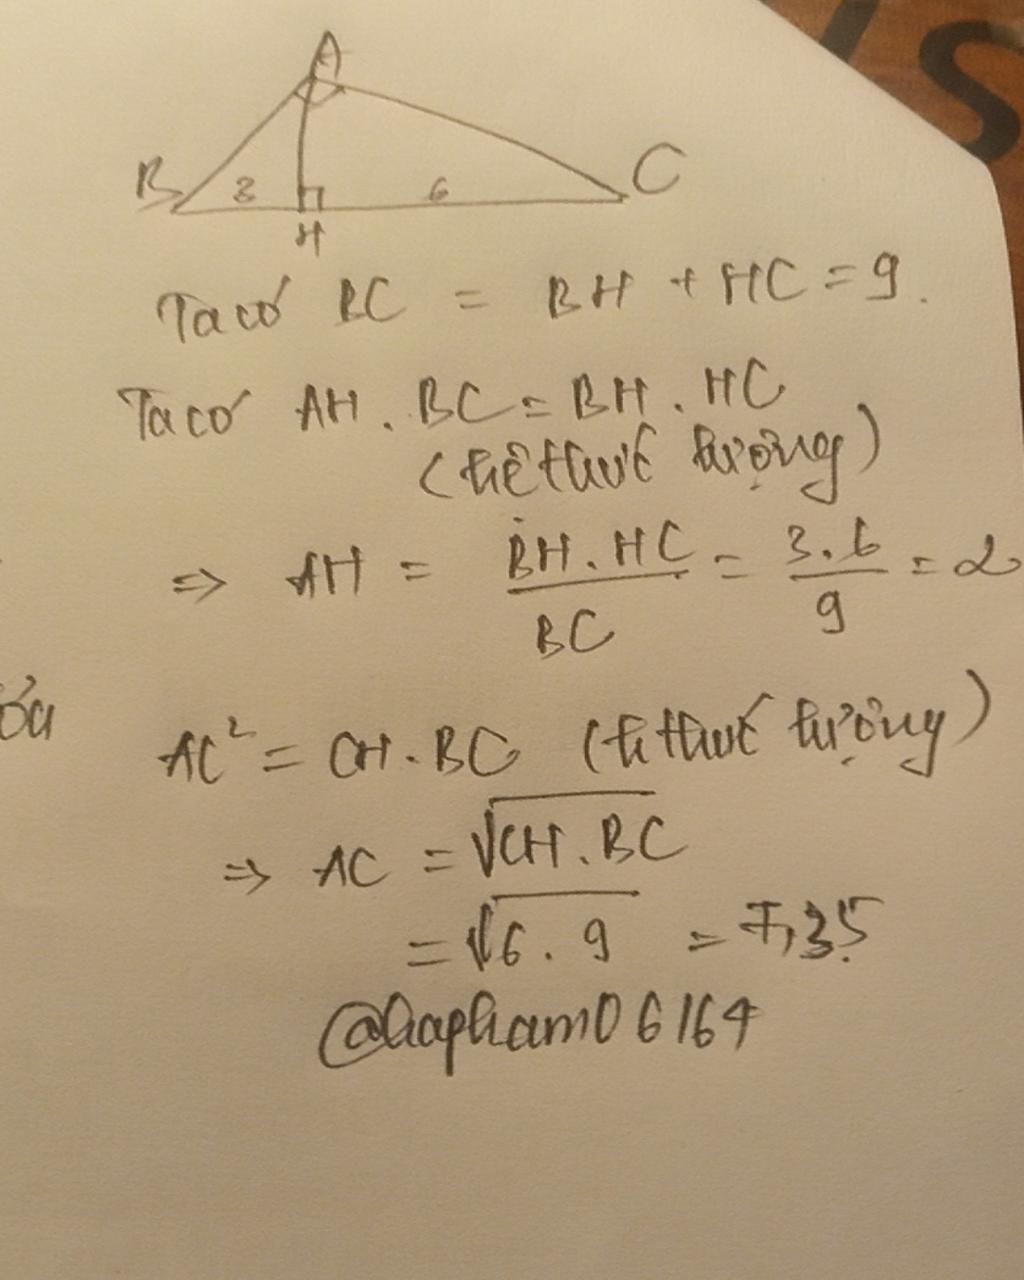 A
B 3 6 C
H
Ta có BC = BH + HC = 9.
Ta có AH . BC = BH . HC
(hệ thức lượng)
=> AH = BH.HC/BC = 3.6/9 = 2
AC² = CH.BC (hệ thức lượng)
=> AC = √CH.BC
= √6.9 = 7,35
@haphamD6164